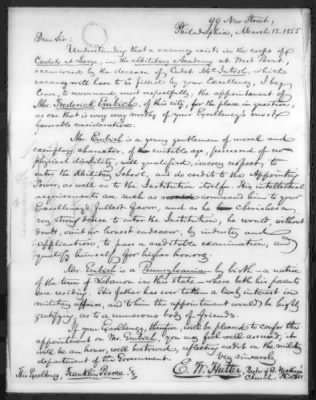 99 New Street,
Philadelphia, March 12. 1855
Dear Sir:
Understanding that a vacancy exists in the corps of
Cadets at Large, in the Military Academy at West Point,
occasioned by the decease of Cadet McIntosh, which
vacancy will have to be filled by your Excellency, I beg
leave, to recommend most respectfully, the appointment of
Mr. Frederick Embich, of this city, for the place in question,
as one that is every way worthy of your Excellency's most
favorable consideration.
Mr. Embich is a young gentleman of moral and
exemplary character, of suitable age, possessed of no
physical disability, well qualified, in every respect, to
enter the Military School, and do credit to the Appointing
Power, as well as to the Institution itself. His intellectual
requirements are such as commend him to your
Excellency's fullest favor, and as he cherishes a
very strong desire to enter the Institution, he would, without
doubt, omit no honest endeavor, by industry and
application, to pass a creditable examination, and
qualify himself for higher honors.
Mr. Embich is a Pennsylvanian by birth — a native
of the town of Lebanon in this State — where both his parents
are residing. His father has ever taken a lively interest in
military affairs, and to him the appointment would be highly
gratifying, as to a numerous body of friends.
If your Excellency, therefore, will be pleased to confer the
appointment on Mr. Embich, you may feel well assured, it
will be an honor, well bestowed, reflecting credit on the military
department of the Government.
Very sincerely
E. W. Hutter
His Excellency, Franklin Pierce